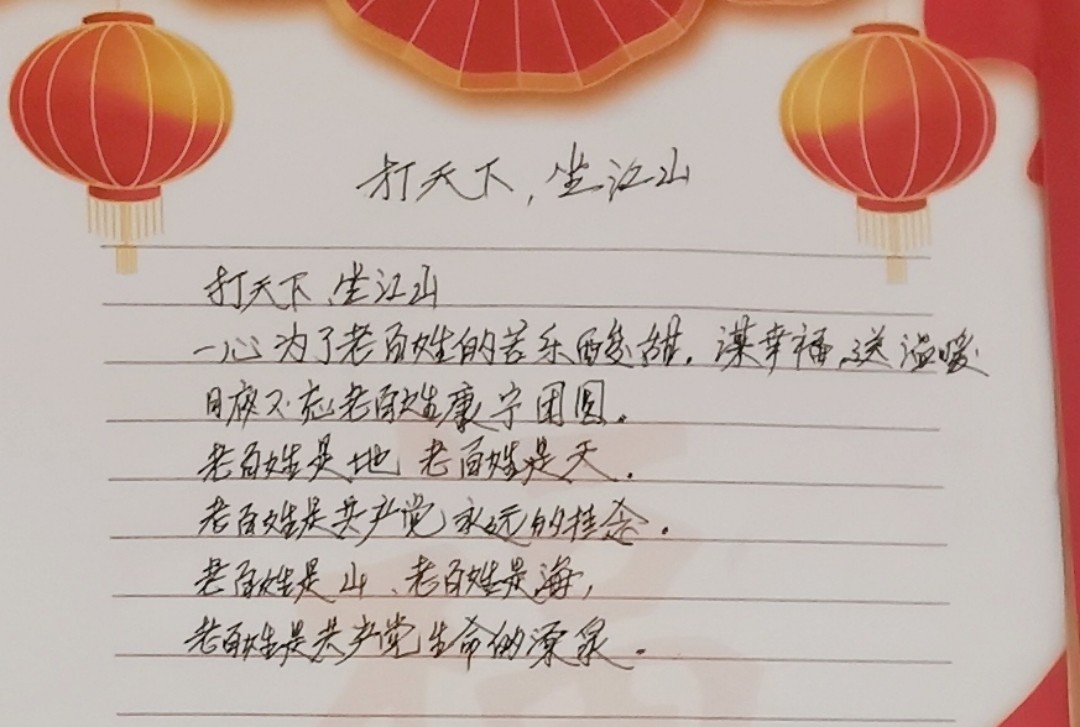 打天下,坐江山
打天下、坐江山
一心为了老百姓的苦乐酸甜.谋幸福、送温暖
日夜不忘老百姓康宁团圆。
老百姓是地 老百姓是天.
老百姓是共产党永远的挂念.
老百姓是山、老百姓是海,
老百姓是共产党生命的源泉.